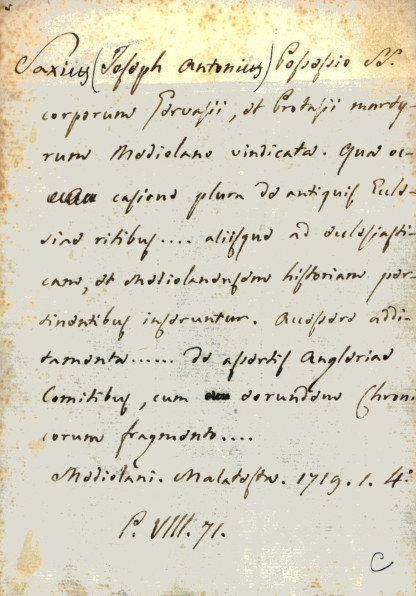 Saxius (Joseph Antonius) Possessio SS.
corporum Gervasii, et Protasii marty-
rum Mediolano vindicata. Qua oc-
casione plura de antiquis Eccle-
siae ritibus.... aliisque ad ecclesiasti-
cam, et Mediolanensem historiam per-
tinentibus inseruntur. Accessere addi-
tamenta...... de assertis Angleriae
Comitibus, cum eorundem Chron
icorum fragmento....
Mediolani. Malatesta. 1719. 1. 4:
P. VIII. 71.
C